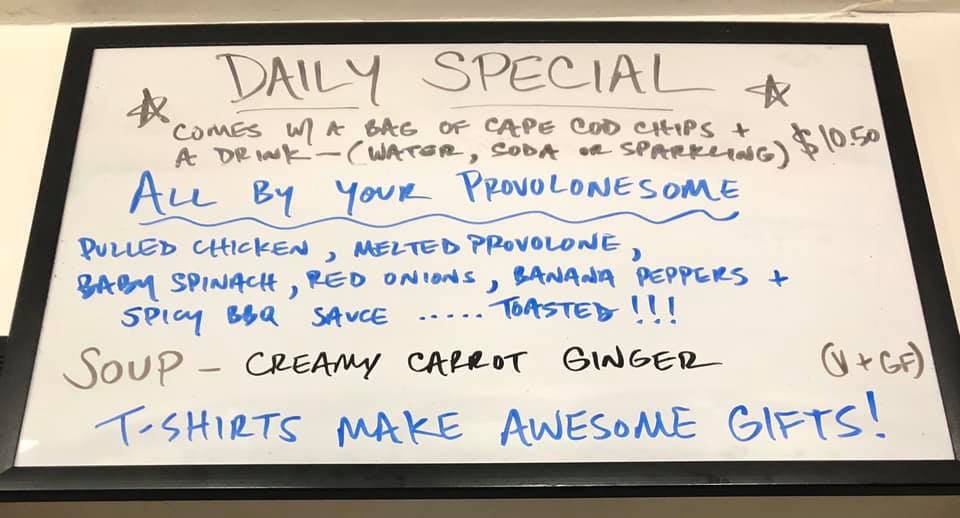 DAILY SPECIAL
COMES W/ A BAG OF CAPE COD CHIPS +
A DRINK - (WATER, SODA OR SPARKLING) $10.50
ALL BY YOUR PROVOLONESOME
PULLED CHICKEN, MELTED PROVOLONE,
BABY SPINACH, RED ONIONS, BANANA PEPPERS +
SPICY BBQ SAUCE ..... TOASTED!!!
SOUP - CREAMY CARROT GINGER (V + GF)
T-SHIRTS MAKE AWESOME GIFTS!